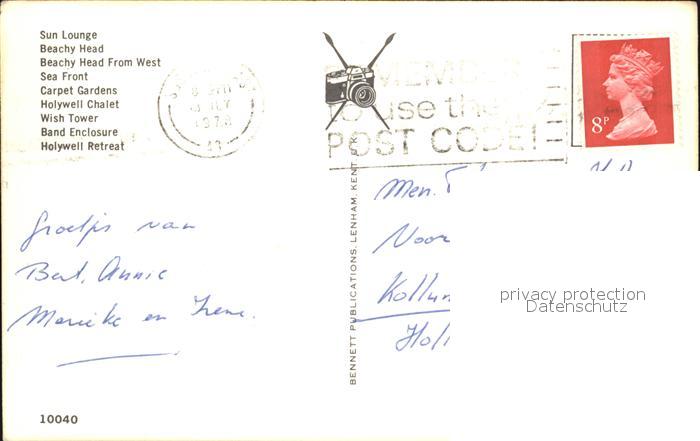 Sun Lounge
Beachy Head
Beachy Head From West
Sea Front
Carpet Gardens
Holywell Chalet
Wish Tower
Band Enclosure
Holywell Retreat
1978
REMEMBER
to use the
POST CODE!
8P
Groetjes van
Bert, Annie
Marieke en Irene.
BENNETT PUBLICATIONS, LENHAM, KENT, U.K.
Noor
Kollum
privacy protection
Datenschutz
10040